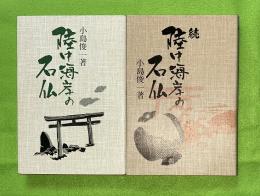 小島俊一著
陸中海岸の
石仏
続
陸中海岸の
石仏
小島俊一著